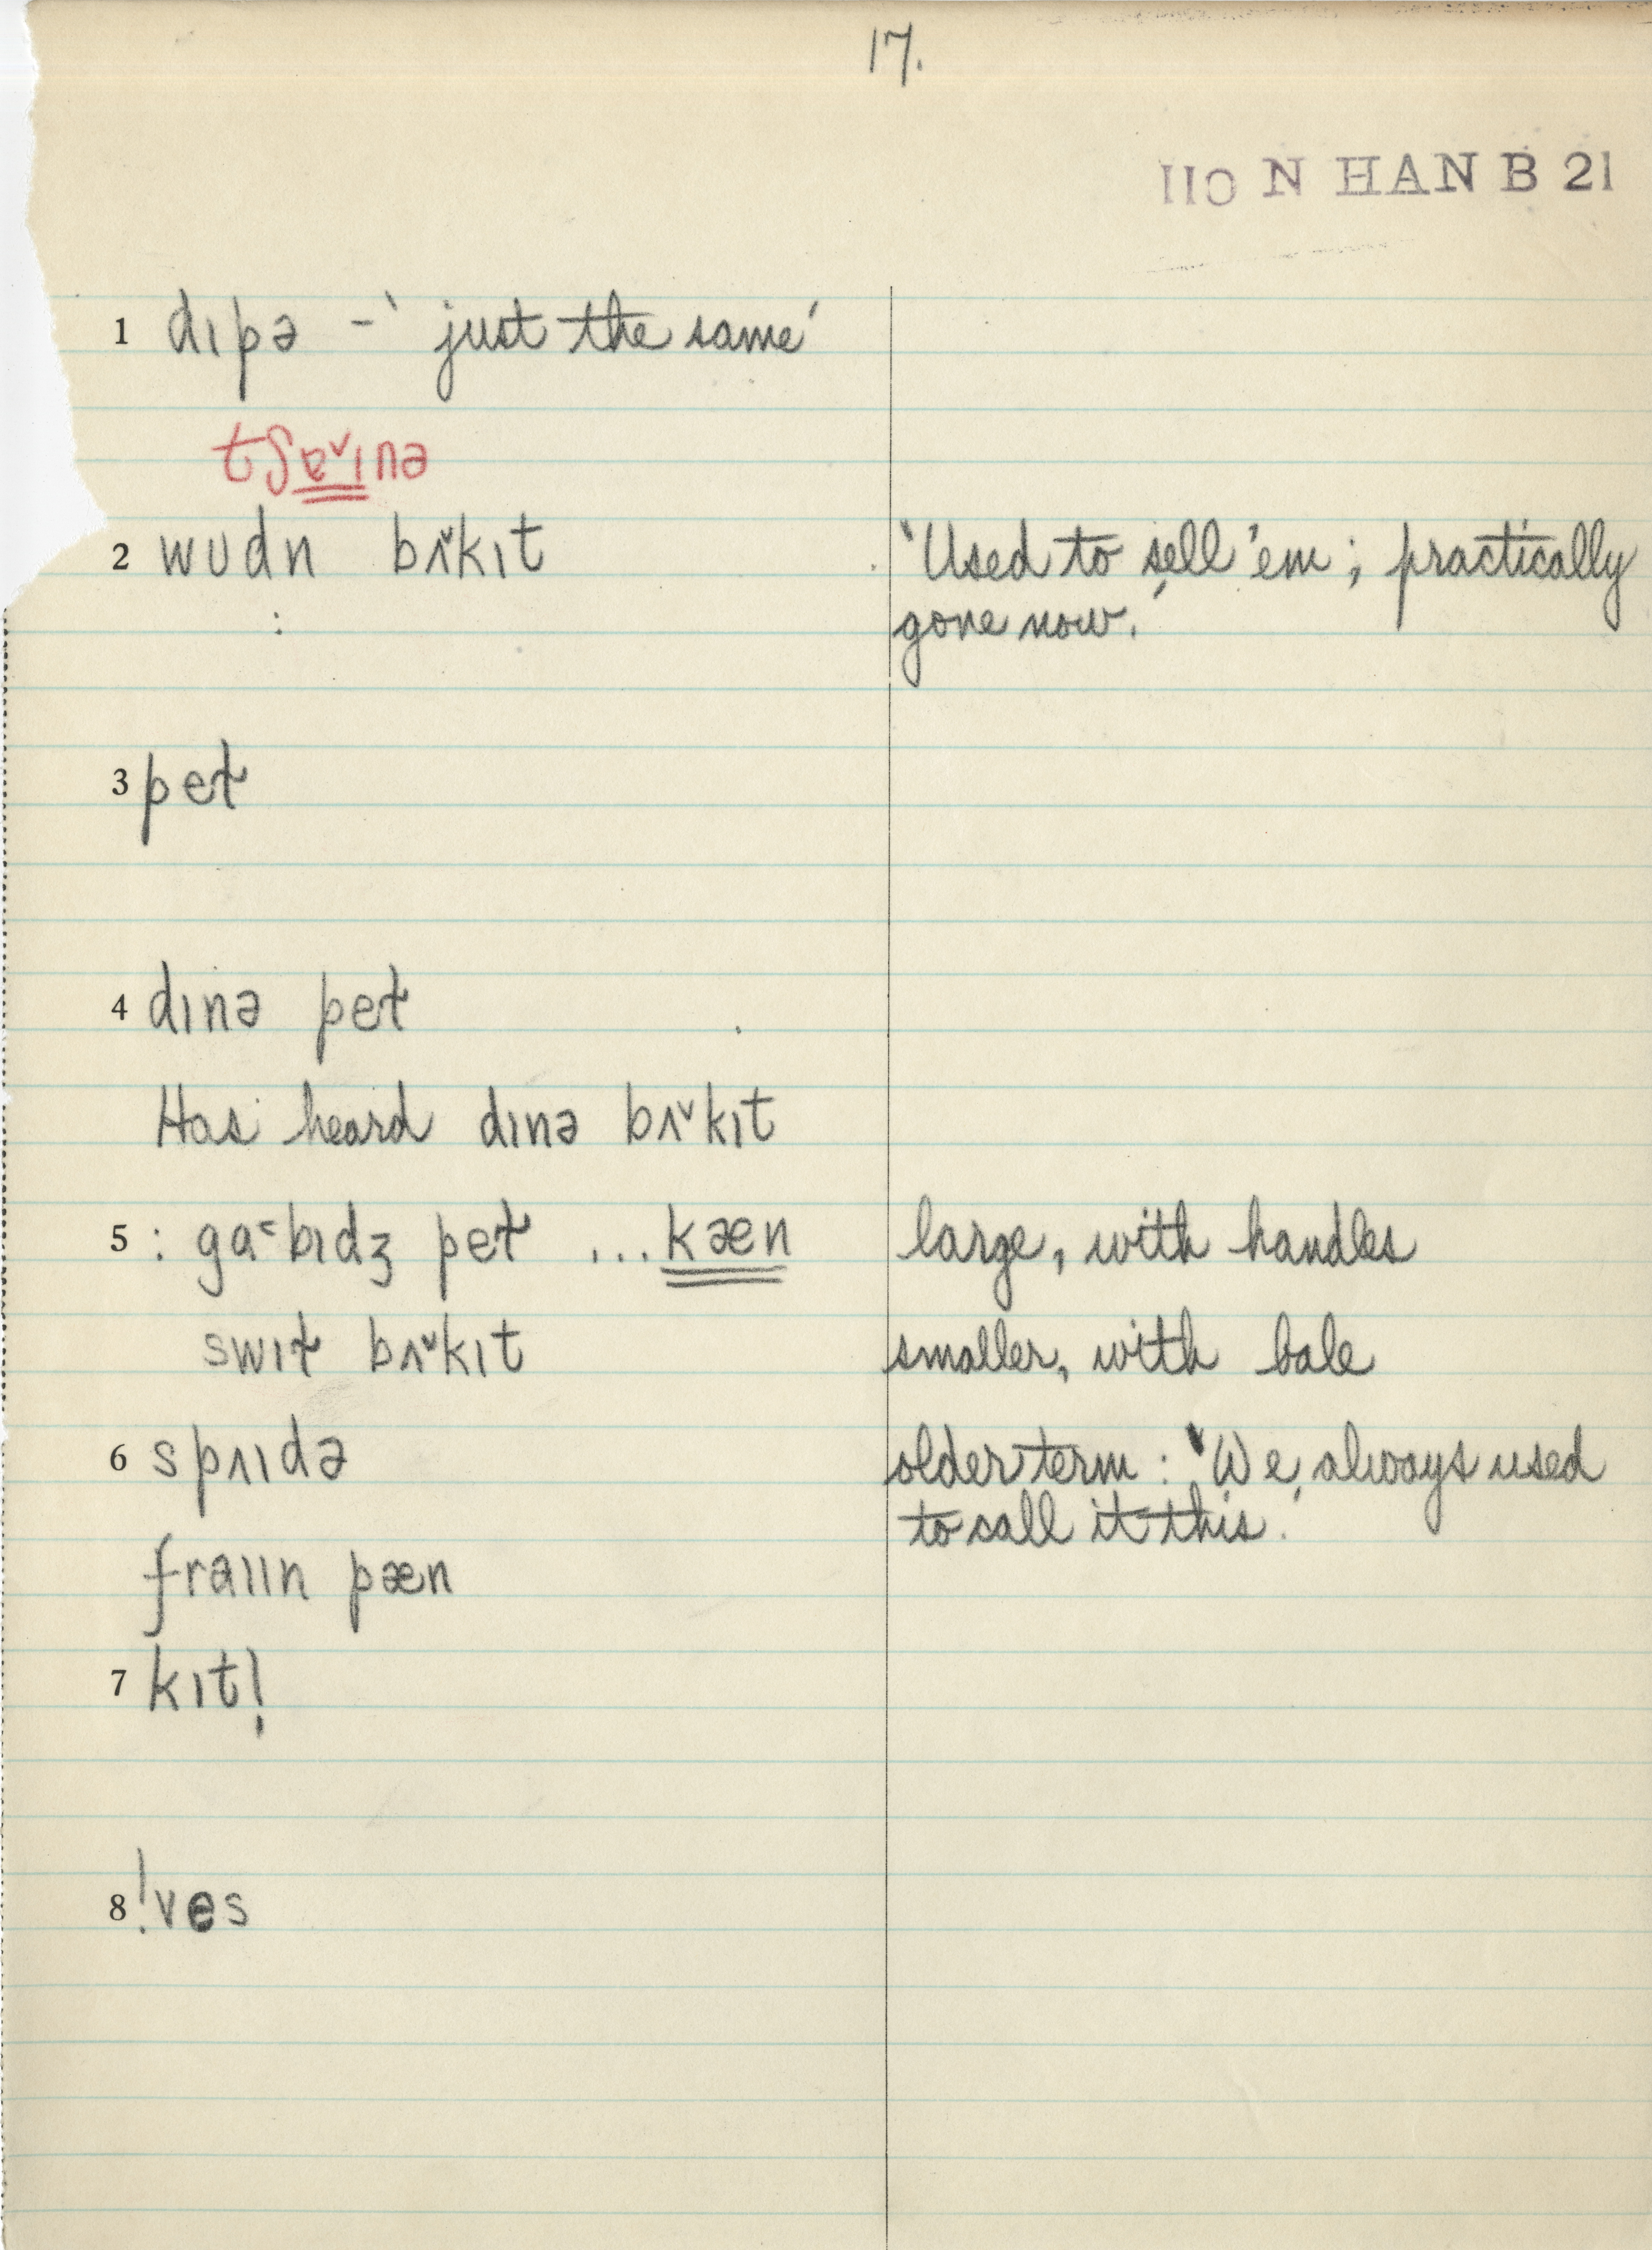 17.
IIO N HAN B 21
1 dɪpə – ‵just the same′
tʃɐ˅ɪnə
2 wʊdn bʌ˅kɪt ‵Used to sell 'em; practically
: gone now.′
3 peɫ
4 dɪnə peɫ
Has heard dɪnə bʌ˅kɪt
5 : ga˂bɪdʒ peɫ ...kæn large, with handles
swɪɫ bʌ˅kɪt smaller, with bale
6 spʌɪdə older term : ‵We always used
to call it this.′
fraɪɪn pæn
7 kɪtl̩
8 !ves